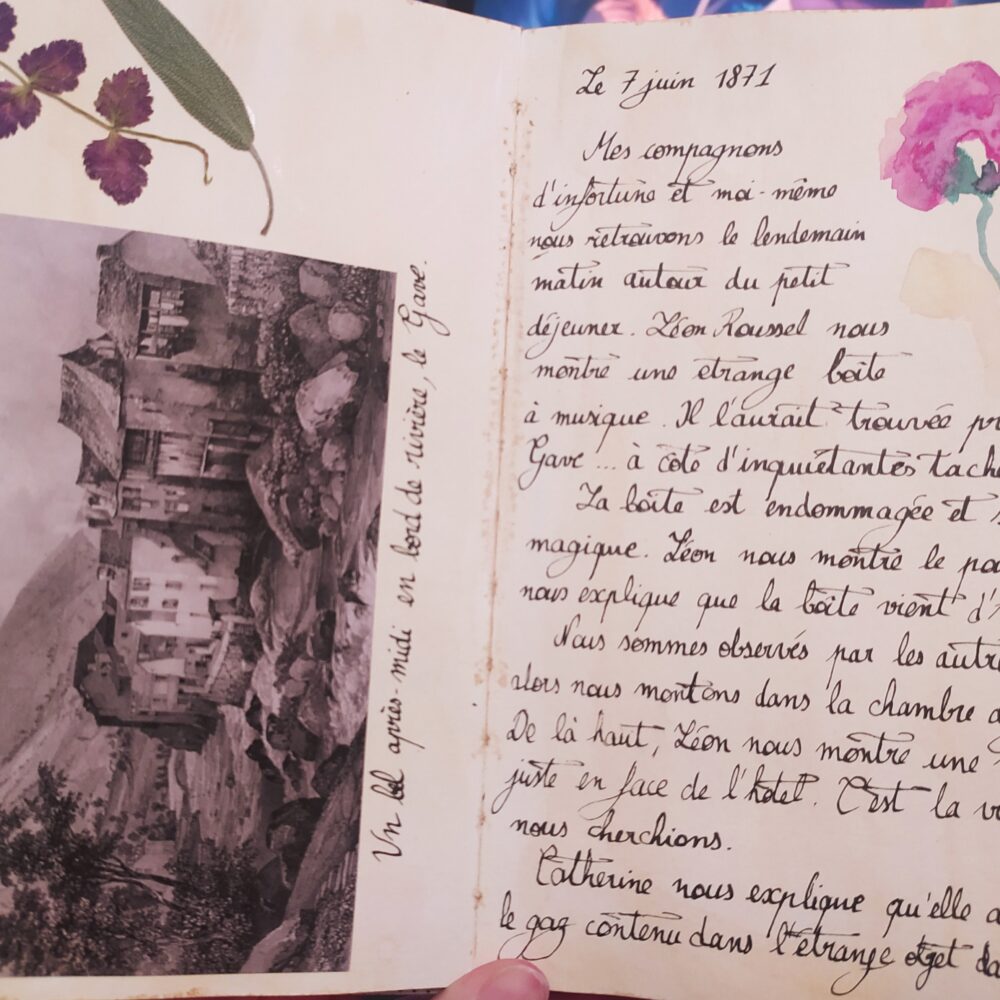 Un bel après-midi en bord de rivière, le Gave.
Le 7 juin 1871
Mes compagnons
d'infortune et moi-même
nous retrouvons le lendemain
matin autour du petit
déjeuner. Léon Roussel nous
montre une etrange boîte
à musique. Il l'aurait trouvée
Gave... à côté d'inquiétantes
La boîte est endommagée et
magique. Léon nous montre le
nous explique que la boîte vient
Nous sommes observés par les
alors nous montons dans la chambre
De là haut, Léon nous montre une
juste en face de l'hôtel. C'est la
nous cherchions.
Catherine nous explique qu'elle
le gaz contenu dans l'étrange objet